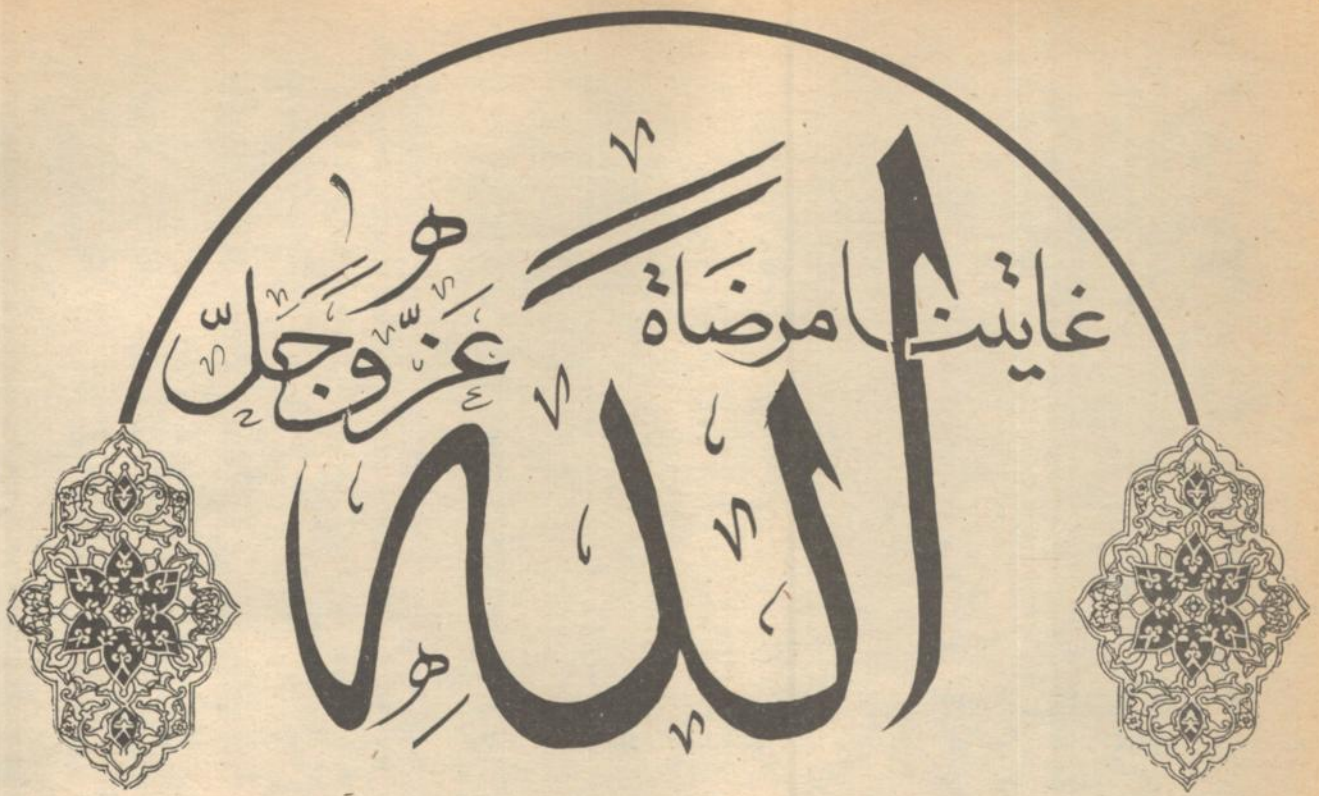 غايتنا مرضاة
الله
عَزَّ وَجَلَّ